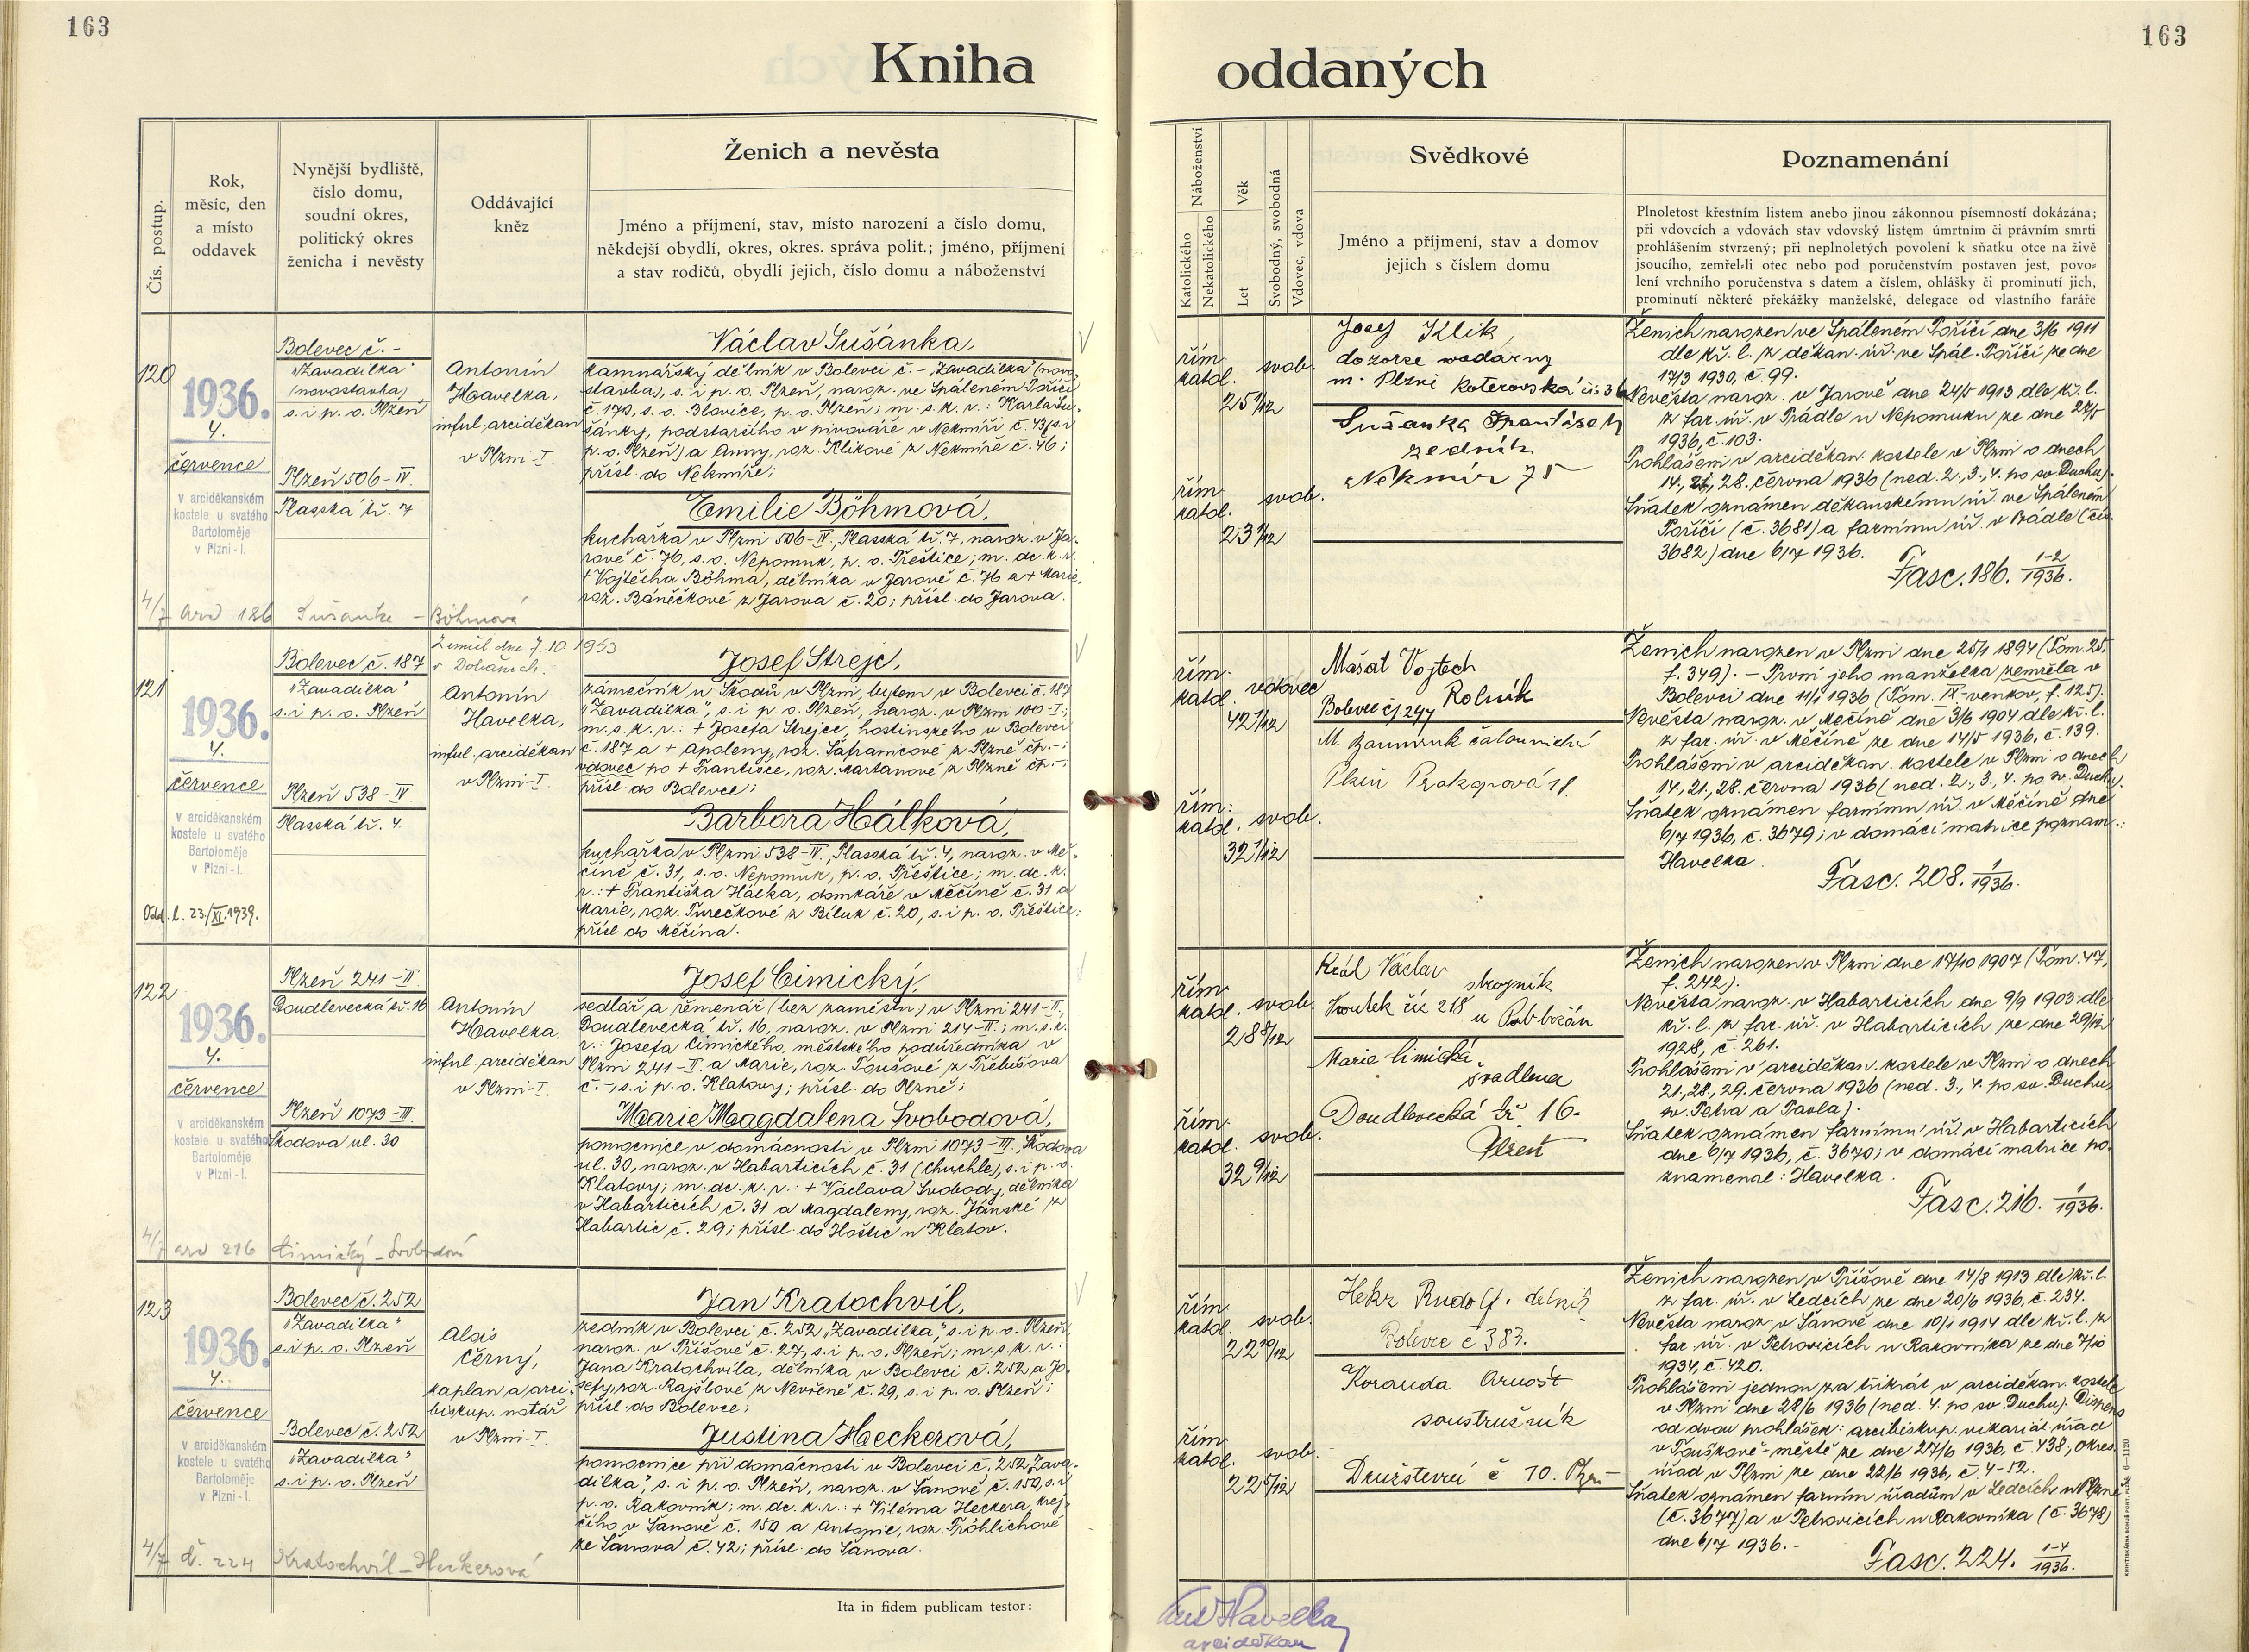 163
163
Kniha
oddaných
Čís. postup.
Rok,
měsíc, den
a místo
oddavek
Nynější bydliště,
číslo domu,
soudní okres,
politický okres
ženicha i nevěsty
Oddávající
kněz
Ženich a nevěsta
Jméno a příjmení, stav, místo narození a číslo domu,
někdejší obydlí, okres, okres. správa polit.; jméno, příjmení
a stav rodičů, obydlí jejich, číslo domu a náboženství
Náboženství
Katolického
Nekatolického
Věk
Let
Svobodný, svobodná
Vdovec, vdova
Svědkové
Jméno a příjmení, stav a domov
jejich s číslem domu
Poznamenání
Plnoletost křestním listem anebo jinou zákonnou písemností dokázána;
při vdovcích a vdovách stav vdovský listem úmrtním či právním smrti
prohlášením stvrzený; při neplnoletých povolení k sňatku otce na živě
jsoucího, zemřel-li otec nebo pod poručenstvím postaven jest, povo-
lení vrchního poručenstva s datem a číslem, ohlášky či prominutí jich,
prominutí některé překážky manželské, delegace od vlastního faráře
120
1936.
4.
července
v arciděkanském
kostele u svatého
Bartoloměje
v Plzni-I.
Bolevec č. -
"Zavadilka"
(novostavba)
s. i p. o. Plzeň
Plzeň 506-IV.
Plasská tř. 7
Antonín
Havelka,
inful. arciděkan
v Plzni-I.
Václav Sušánka,
kamnářský dělník v Bolevci č. - "Zavadilka" (novo-
stavba), s. i p. o. Plzeň, naroz. ve Spáleném Poříčí
č. 170, s. o. Blovice, p. o. Plzeň; m. s. k. r.: Karla Su-
šánky, podstaršího v pivováře v Nekmíři č. 43 (s. i
p. o. Plzeň) a Anny, roz. Klikové z Nekmíře č. 46;
přísl. do Nekmíře;
Emilie Böhmová,
kuchařka v Plzni 506-IV., Plasská tř. 7, naroz. v Ja-
rově č. 76, s. o. Nepomuk, p. o. Přeštice; m. dc. k. r.
+ Vojtěcha Böhma, dělníka v Jarově č. 76 a + Marie,
roz. Báněčkové z Jarova č. 20; přísl. do Jarova.
4/7 ard 186 Sušanka - Böhmová
řím.
katol.
svob.
25 1/12
řím.
katol.
svob.
23 1/12
Josef Klik,
dozorce vodárny
m. Plzni Koterovská čís 36
Sušanka František
zedník
Nekmíř 75
Ženich narozen ve Spáleném Poříčí dne 3/6 1911
dle kř. l. z děkan. úř. ve Spál. Poříčí ze dne
17/3 1930, č. 99.
Nevěsta naroz. v Jarově dne 24/5 1913 dle kř. l.
z far. úř. v Prádle u Nepomuku ze dne 27/5
1936, č. 103.
Prohlášeni v arciděkan. kostele v Plzni o dnech
14., 21., 28. června 1936 (ned. 2., 3., 4. po sv. Duchu).
Sňatek oznámen děkanskému úř. ve Spáleném
Poříčí (č. 3681) a farnímu úř. v Prádle (čís.
3682) dne 6/7 1936.
Fasc. 186. 1-2/1936.
121
1936.
4.
července
v arciděkanském
kostele u svatého
Bartoloměje
v Plzni-I.
Odd. l. 23/XI.1939.
Bolevec č. 187
"Zavadilka"
s. i p. o. Plzeň
Plzeň 538-IV.
Plasská tř. 4.
Zemřel dne 7. 10. 1953
v Dobřanech.
Antonín
Havelka,
inful. arciděkan
v Plzni-I.
Josef Strejc,
zámečník u Škodů v Plzni, bytem v Bolevci č. 187
"Zavadilka", s. i p. o. Plzeň, naroz. v Plzni 100-I.;
m. s. k. r.: + Josefa Strejce, hostinského v Bolevci
č. 187 a + Apoleny, roz. Šafránicové z Plzně čp. -;
vdovec po + Františce, roz. Martanové z Plzně čp. -;
přísl. do Bolevce;
Barbora Hálková,
kuchařka v Plzni 538-IV., Plasská tř. 4, naroz. v Mě-
číně č. 31, s. o. Nepomuk, p. o. Přeštice; m. dc. k.
r.: + Františka Hálka, domkáře v Měčíně č. 31 a
Marie, roz. Turečkové z Biluk č. 20, s. i p. o. Přeštice;
přísl. do Měčína.
řím.
katol.
vdovec
42 1/12
řím.
katol.
svob.
32 1/12
Mašat Vojtěch
Rolník
Bolevec čj. 247
M. čalounická
Plzeň Prokopová 18.
Ženich narozen v Plzni dne 25/1 1894 (Tom. 25.
f. 349). - První jeho manželka zemřela v
Bolevci dne 11/1 1936 (Tom. IX-venkov, f. 125).
Nevěsta naroz. v Měčíně dne 3/6 1904 dle kř. l.
z far. úř. v Měčíně ze dne 14/5 1936, č. 139.
Prohlášeni v arciděkan. kostele v Plzni o dnech
14., 21., 28. června 1936 (ned. 2., 3., 4. po sv. Duchu).
Sňatek oznámen farnímu úř. v Měčíně dne
6/7 1936, č. 3679; v domácí matrice poznam.:
Havelka.
Fasc. 208. 1/1936.
122
1936.
4.
července
v arciděkanském
kostele u svatého
Bartoloměje
v Plzni-I.
Plzeň 241-II
Doudlevecká tř. 16
Plzeň 1073-III
Škodova ul. 30
Antonín
Havelka
inful. arciděkan
v Plzni-I.
Josef Cimický,
sedlář a řemenář (bez zaměstn.) v Plzni 241-II,
Doudlevecká tř. 16, naroz. v Plzni 214-II; m. s. k.
r.: Josefa Cimického, městského podúředníka v
Plzni 241-II a Marie, roz. Toušové z Třebušova
č. -, s. i p. o. Klatovy; přísl. do Plzně;
Marie Magdalena Svobodová,
pomocnice v domácnosti v Plzni 1073-III, Škodova
ul. 30, naroz. v Habarticích č. 31 (Chuchle), s. i p. o.
Klatovy; m. dc. k. r.: + Václava Svobody, dělníka
v Habarticích č. 31 a Magdaleny, roz. Jánské z
Habartic č. 29; přísl. do Hoštic u Klatov.
4/7 ard 216 Cimický - Svobodová
řím.
katol.
svob.
28 8/12
řím.
katol.
svob.
32 9/12
Král Václav
strojník
čís 218
Marie Cimická
švadlena
Doudlevecká tř. 16.
Plzeň
Ženich narozen v Plzni dne 17/10 1907 (Tom. 47,
f. 242).
Nevěsta naroz. v Habarticích dne 9/9 1903 dle
kř. l. z far. úř. v Habarticích ze dne 29/12
1928, č. 261.
Prohlášeni v arciděkan. kostele v Plzni o dnech
21., 28., 29. června 1936 (ned. 3., 4. po sv. Duchu,
sv. Petra a Pavla).
Sňatek oznámen farnímu úř. v Habarticích
dne 6/7 1936, č. 3670; v domácí matrice po-
znamenal: Havelka.
Fasc. 216. 1/1936.
123
1936.
4.
července
v arciděkanském
kostele u svatého
Bartoloměje
v Plzni-I.
Bolevec č. 252
"Zavadilka"
s. i p. o. Plzeň
Bolevec č. 252
"Zavadilka"
s. i p. o. Plzeň
Alois
Černý,
kaplan a arci-
biskup. notář
v Plzni-I.
Jan Kratochvíl,
zedník v Bolevci č. 252 "Zavadilka", s. i p. o. Plzeň,
naroz. v Příšově č. 27, s. i p. o. Plzeň; m. s. k. r.:
Jana Kratochvíla, dělníka v Bolevci č. 252 a Jo-
sefy, roz. Rajšlové z Nevřeně č. 29, s. i p. o. Plzeň;
přísl. do Bolevce;
Justina Heckerová,
pomocnice při domácnosti v Bolevci č. 252 "Zava-
dilka", s. i p. o. Plzeň, naroz. v Šanově č. 150, s. i
p. o. Rakovník; m. dc. k. r.: + Viléma Heckera, krej-
čího v Šanově č. 150 a Antonie, roz. Fröhlichové
ze Šanova č. 42; přísl. do Šanova.
4/7 č. 224 Kratochvíl - Heckerová
řím.
katol.
svob.
22 10/12
řím.
katol.
svob.
22 5/12
Hekr Rudolf. dělník
Bolevec č 383.
Koranda Arnošt
soustružník
Družstevní č 10. Plzeň
Ženich narozen v Příšově dne 14/8 1913 dle kř. l.
z far. úř. v Ledcích ze dne 20/6 1936, č. 234.
Nevěsta naroz. v Šanově dne 10/1 1914 dle kř. l. z
far. úř. v Petrovicích u Rakovníka ze dne 7/10
1934, č. 420.
Prohlášeni jednou za třikrát v arciděkan. kostele
v Plzni dne 28/6 1936 (ned. 4. po sv. Duchu). Dispens
od dvou prohlášek: arcibiskup. vikariát. úřad
v Touškově-městě ze dne 27/6 1936, č. 438, okres.
úřad v Plzni ze dne 22/6 1936, č. 4-52.
Sňatek oznámen farním úřadům v Ledcích u Plzně
(č. 3677) a v Petrovicích u Rakovníka (č. 3678)
dne 6/7 1936. -
Fasc. 224. 1-4/1936.
Ita in fidem publicam testor:
Ant Havelka
arciděkan